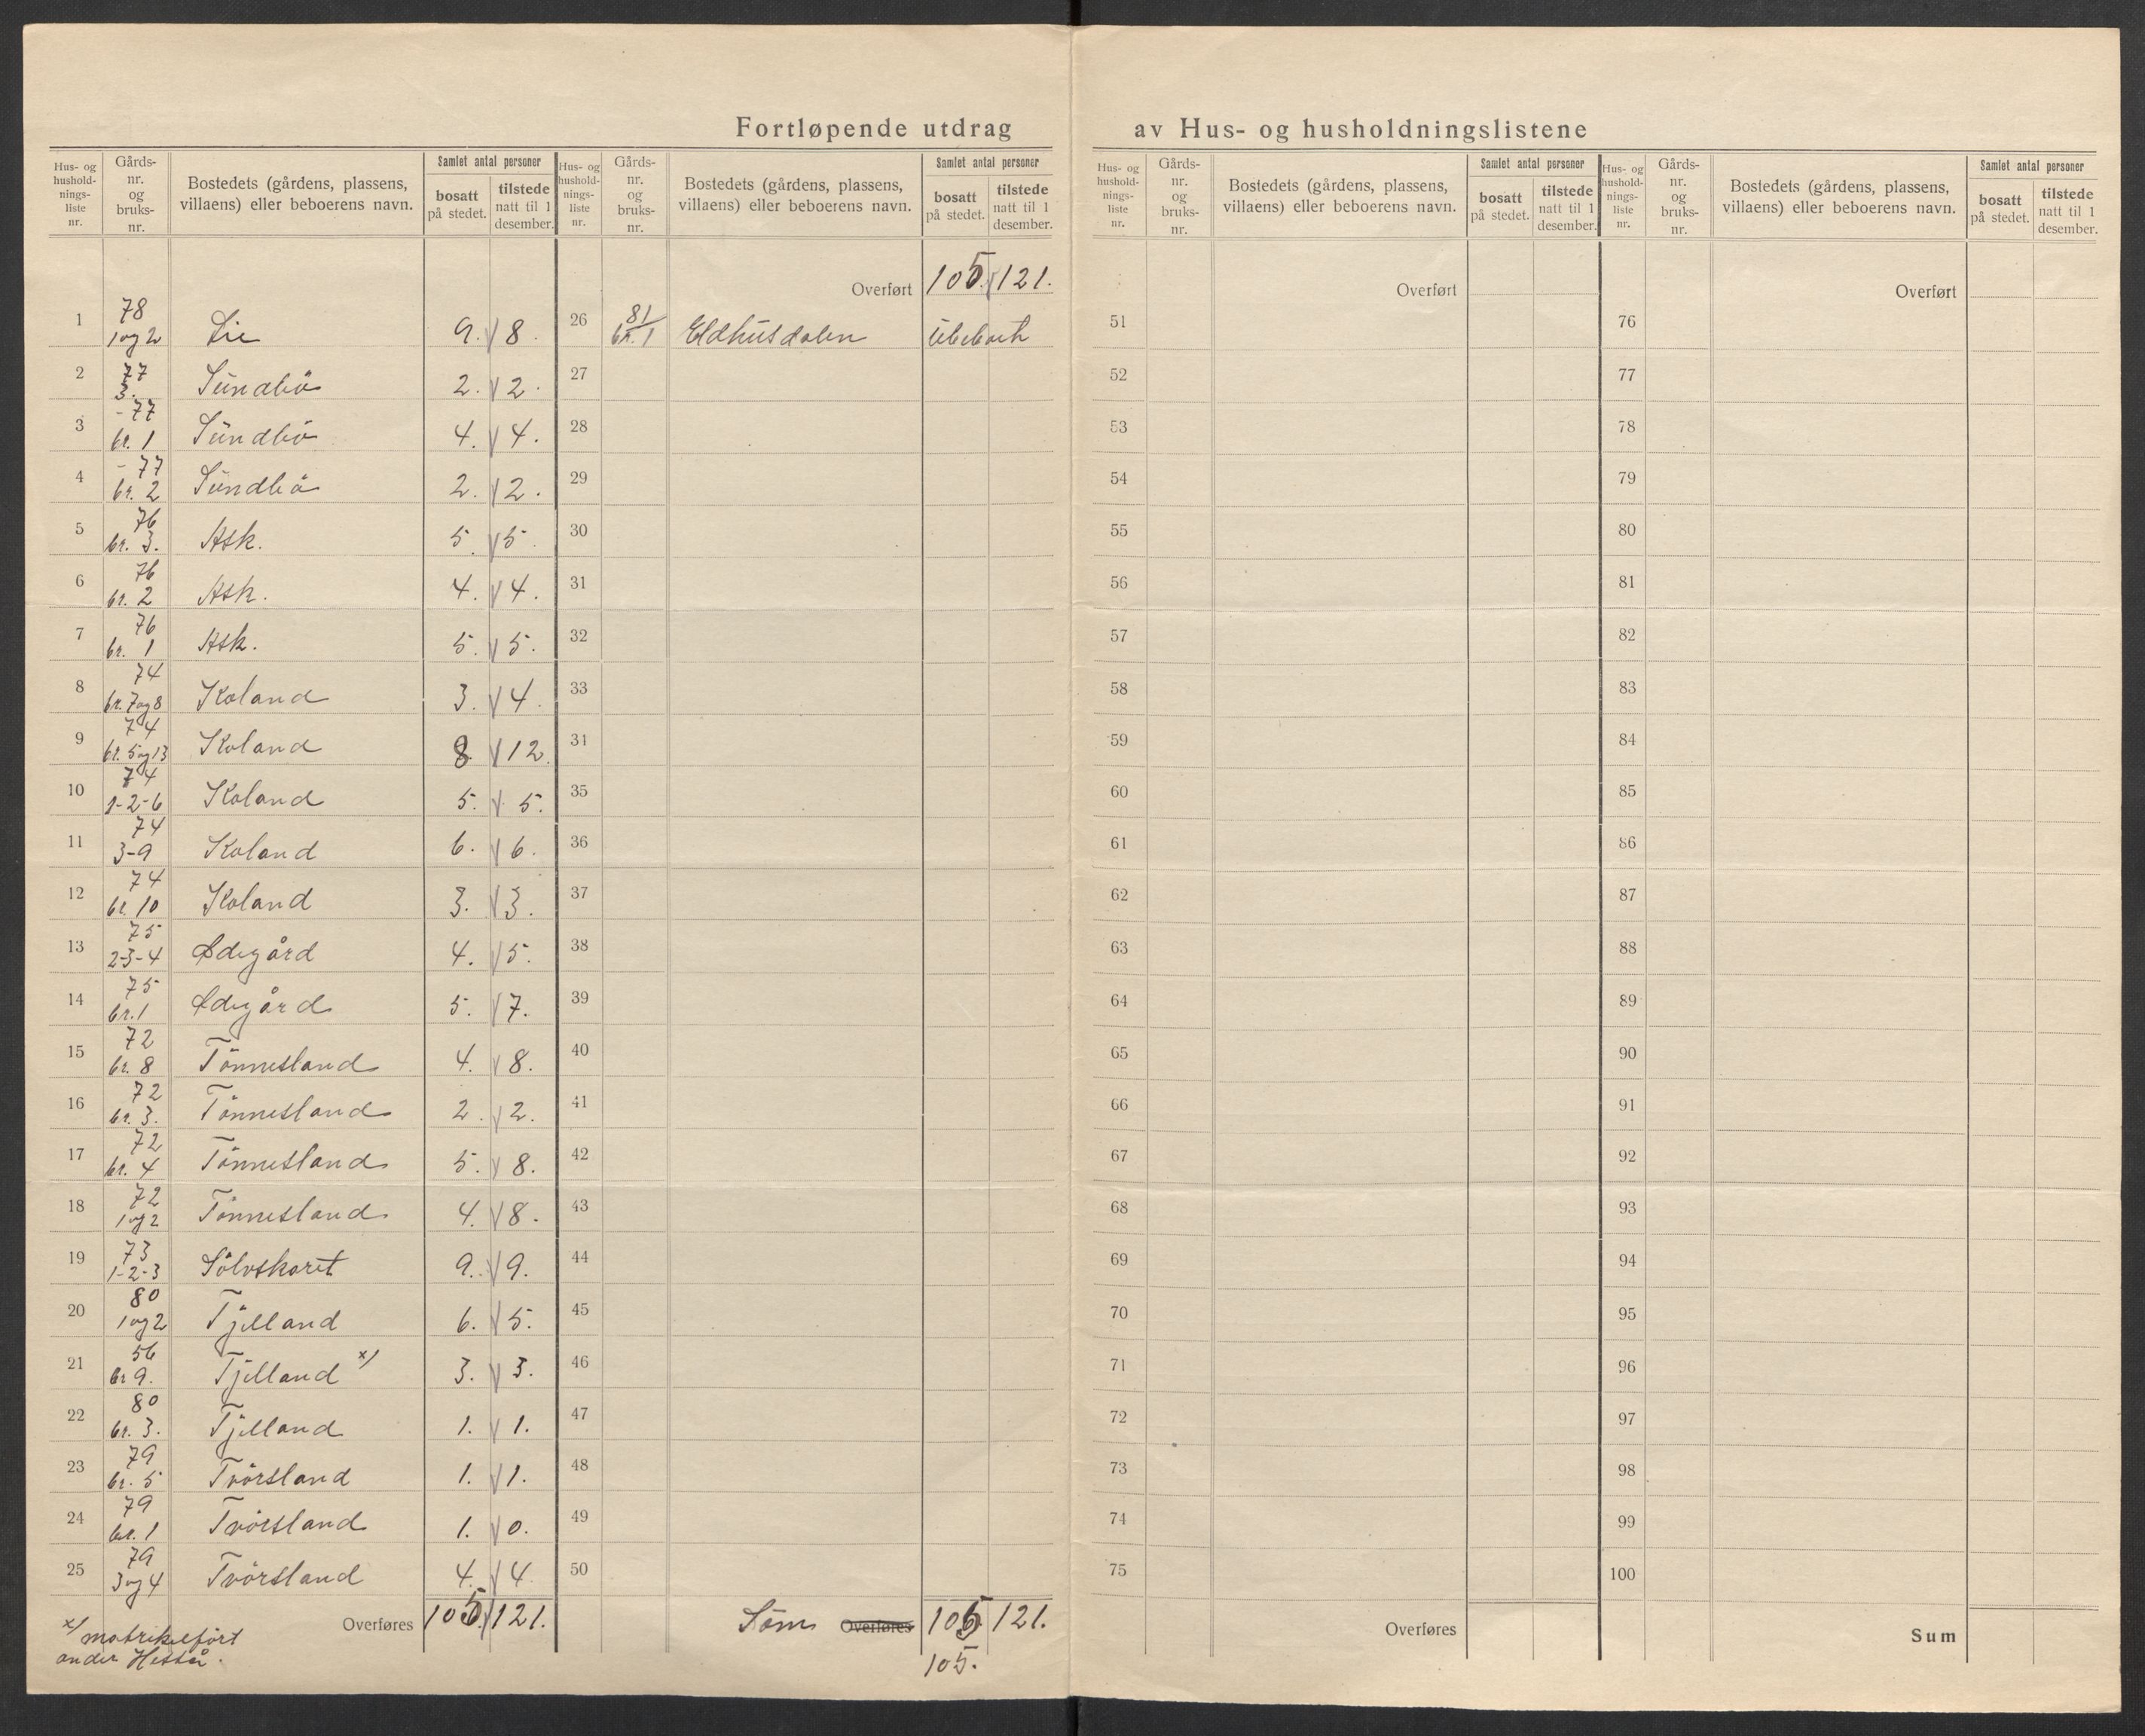 Fortløpende utdrag av Hus- og husholdningslistene
Hus- og hushold- nings- liste nr. | Gårds- nr. og bruks- nr. | Bostedets (gårdens, plassens, villaens) eller beboerens navn. | Samlet antal personer bosatt på stedet. | tilstede natt til 1 desember.
Hus- og hushold- nings- liste nr. | Gårds- nr. og bruks- nr. | Bostedets (gårdens, plassens, villaens) eller beboerens navn. | Samlet antal personer bosatt på stedet. | tilstede natt til 1 desember.
Hus- og hushold- nings- liste nr. | Gårds- nr. og bruks- nr. | Bostedets (gårdens, plassens, villaens) eller beboerens navn. | Samlet antal personer bosatt på stedet. | tilstede natt til 1 desember.
Hus- og hushold- nings- liste nr. | Gårds- nr. og bruks- nr. | Bostedets (gårdens, plassens, villaens) eller beboerens navn. | Samlet antal personer bosatt på stedet. | tilstede natt til 1 desember.
1 78 1og2 Lie 9. 8.
2 77 3. Sundbö 2. 2.
3 -77 br. 1 Sundbö 4. 4.
4 -77 br. 2 Sundbö 2. 2.
5 76 br. 3. Ask. 5. 5.
6 76 br. 2 Ask. 4. 4.
7 76 br. 1 Ask. 5. 5.
8 74 br. 7og8 Koland 3. 4.
9 74 br. 5og13 Koland 8 12.
10 74 1-2-6 Koland 5. 5.
11 74 3-9 Koland 6. 6.
12 74 br. 10 Koland 3. 3.
13 75 2-3-4 Ødegård 4. 5.
14 75 br. 1 Ødegård 5. 7.
15 72 br. 8 Tönnesland 4. 8.
16 72 br. 3. Tönnesland 2. 2.
17 72 br. 4 Tönnesland 5. 8.
18 72 1og2 Tönnesland 4. 8.
19 73 1-2-3 Sölvskaret 9. 9.
20 80 1og2 Tjelland 6. 5.
21 56 br 9. Tjelland x) 3. 3.
22 80 br. 3. Tjelland 1. 1.
23 79 br. 5 Tvörsland 1. 1.
24 79 br. 1 Tvörsland 1. 0.
25 79 3og4 Tvörsland 4. 4.
Overføres 105. 121.
x) matrikelfört
under
Overført 105. 121.
26 81 br. 1 Eldhusdalen Ubebodt
27
28
29
30
31
32
33
31
35
36
37
38
39
40
41
42
43
44
45
46
47
48
49
50
Sum Overføres 105 121.
105.
Overført
51
52
53
54
55
56
57
58
59
60
61
62
63
64
65
66
67
68
69
70
71
72
73
74
75
Overføres
Overført
76
77
78
79
80
81
82
83
84
85
86
87
88
89
90
91
92
93
94
95
96
97
98
99
100
Sum